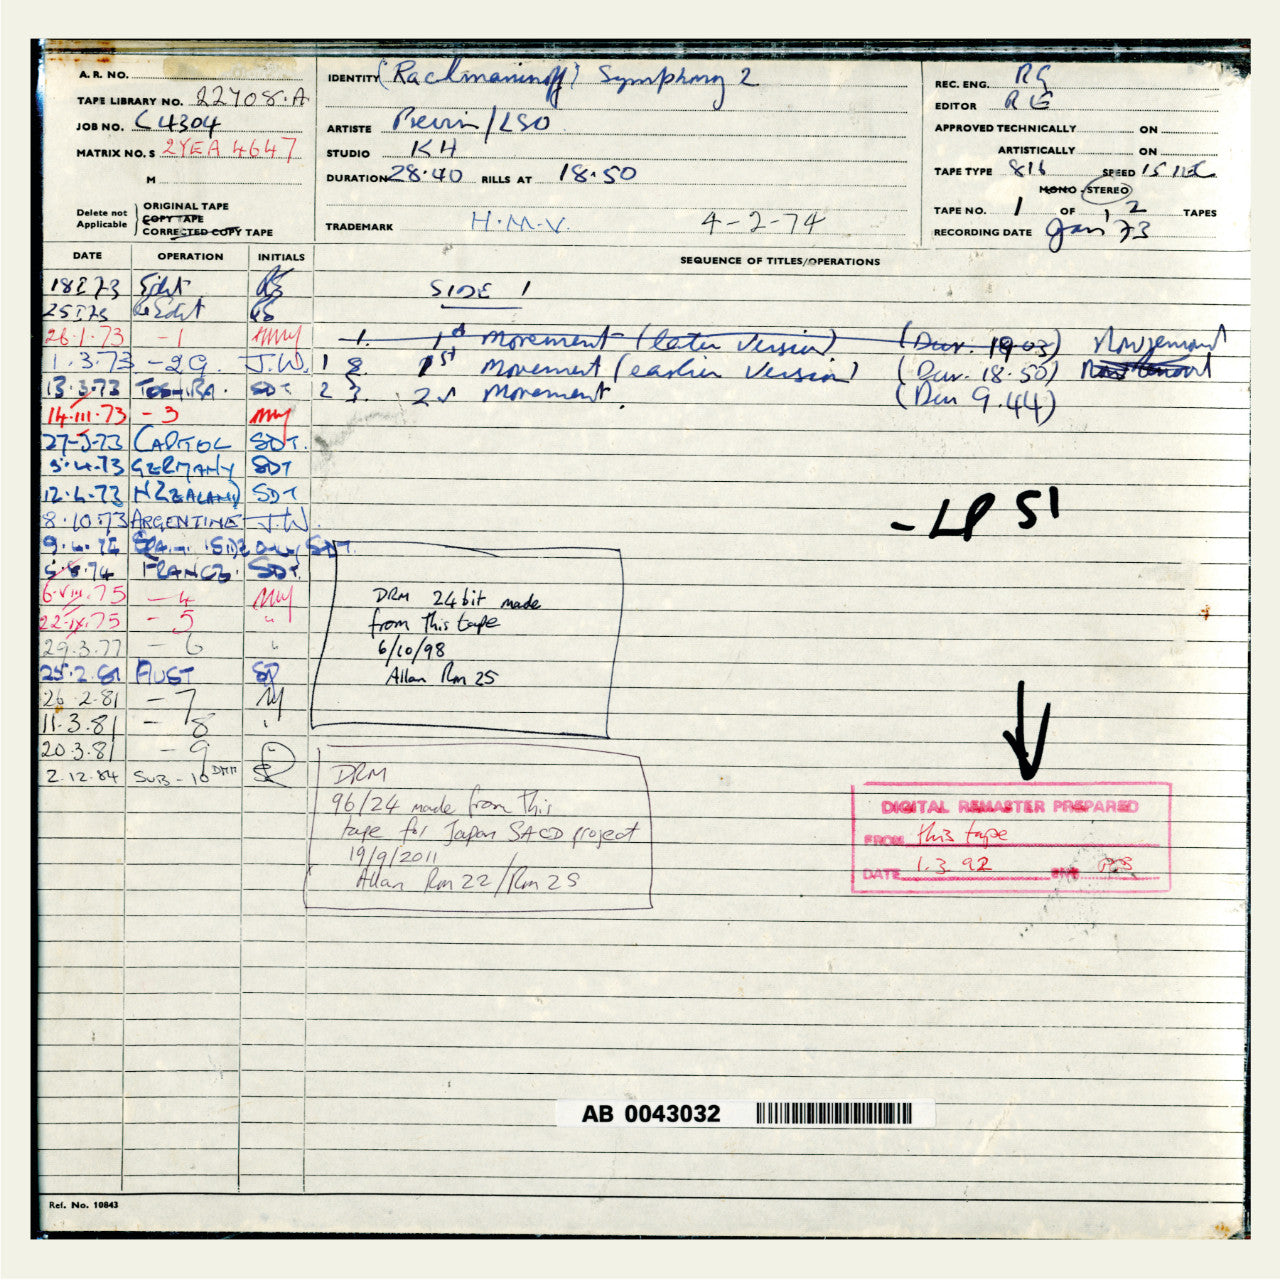 A. R. NO.
TAPE LIBRARY NO. 22708·A
JOB NO. C 4304
MATRIX NO. S 2YEA 4647
M
Delete not Applicable
ORIGINAL TAPE
COPY TAPE
CORRECTED COPY TAPE
IDENTITY (Rachmaninoff) Symphony 2
ARTISTE Previn/LSO
STUDIO KH
DURATION 28·40 RILLS AT 18·50
TRADEMARK H.M.V. 4-2-74
REC. ENG. RG
EDITOR
APPROVED TECHNICALLY ON
ARTISTICALLY ON
TAPE TYPE 816 SPEED 15
MONO - STEREO
TAPE NO. 1 OF 2 TAPES
RECORDING DATE Jan '73
DATE OPERATION INITIALS SEQUENCE OF TITLES/OPERATIONS
18 I 73 Edit
SIDE 1
26·1·73 -1 1. 1st Movement (later version) (Dur. 19·03)
1·3·73 -2G. J.W. 1 2. 1st Movement (earlier version) (Dur. 18·50)
13·3·73 TOSHIBA. SDT 2 3. 2nd Movement. (Dur 9.44)
14·III·73 -3
27-3-73 CAPITOL SDT.
3·4·73 GERMANY SDT
12·4·73 NZEALAND SDT
8·10·73 ARGENTINE J.W.
- LP S1
SDT.
5·8·74 FRANCE· SDT.
6·VIII·75 -4
22·IX·75 -5 "
29·3·77 -6 "
DRM 24 bit made
from this tape
6/10/98
Allan Rm 25
25·2·81 AUST
26·2·81 -7
11·3·81 -8 "
20·3·81 -9
2·12·84 SUB-10
DRM
96/24 made from this
tape for Japan SACD project
19/9/2011
Allan Rm 22/Rm 25
DIGITAL REMASTER PREPARED
FROM this tape
DATE 1.3.92
AB 0043032
Ref. No. 10843